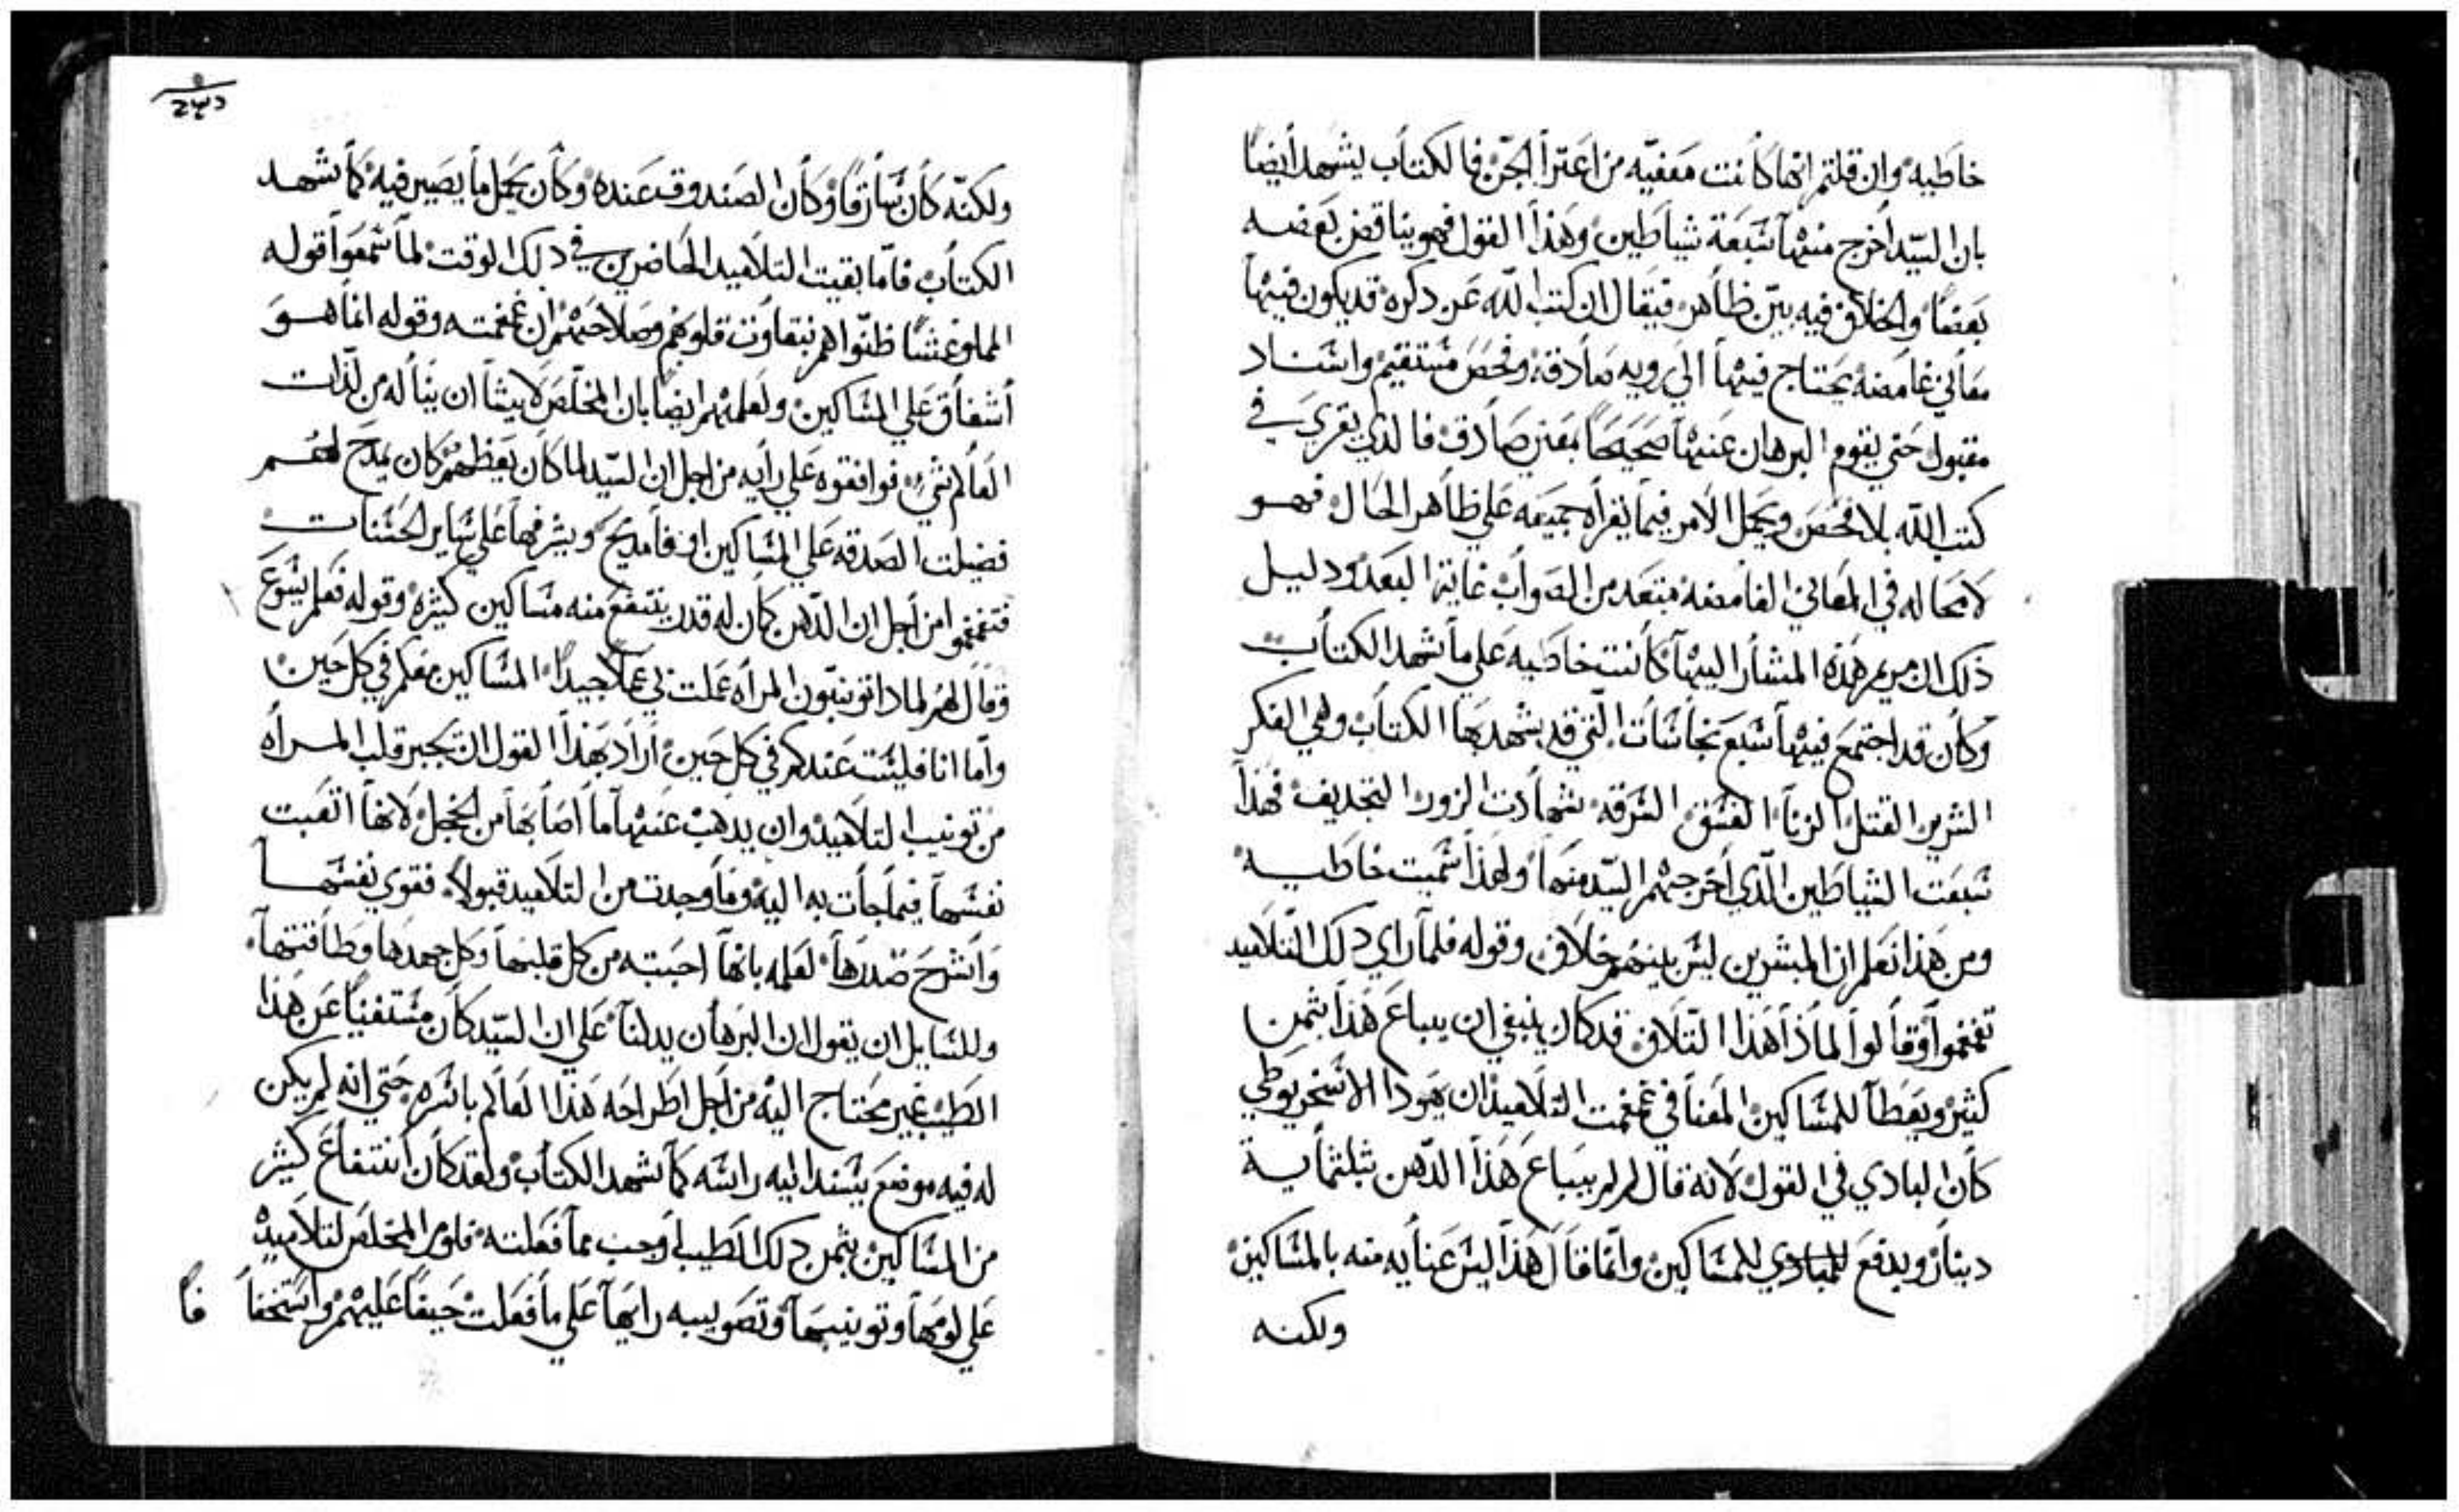 خاطيه وان قلتم انها كانت معفيه من اعترا الجن فالكتاب يشهد ايضا
بان السيد اخرج منها سبعة شياطين وهذا القول فهو يناقض بعضه
بعضا والخلاف فيه بين ظاهر فيقال ان كتب الله عز دكره قد يكون فيها
معاني غامضه يحتاج فيها الي رويه صادقه وفحص مستقيم واسناد
مقبول حتي يقوم البرهان عنها صحيحا بمعني صادق فالذي يقري في
كتب الله بلا فحص ويحمل الامر فيما يقراه جميعه علي ظاهر الحال فهو
لا محاله في المعاني الغامضه مبتعد من الصواب غاية البعد ودليل
ذلك ان مريم هذه المشار اليها كانت خاطيه علي ما شهد الكتاب
وكان قد اجتمع فيها سبع نجاسات التي قد يشهد بها الكتاب وهي الفكر
الشرير القتل الزنا الفسق السرقه شهادت الزور التجديف فهذا
سبعت الشياطين الذي اخرجهم السيد منها ولهذا سميت خاطيه
ومن هذا نعلم ان المبشرين ليس بينهم خلاف وقوله فلما راي دلك التلاميد
تغمغموا وقالوا لماذا هذا التلاف قد كان ينبغي ان يباع هذا بثمن
كثير ويعطا للمساكين المعنا في غمغمت التلاميذ ان يهودا الاسخريوطي
كان البادي في القول لانه قال لم لم يباع هذا الدهن بثلثماية
دينار ويدفع للمساكين وانما قال هذا ليس عنايه منه بالمساكين
ولكنه
ولكنه كان سارقا وكان الصندوق عنده وكان يحمل ما يصير فيه كما شهد
الكتاب فاما بقيت التلاميد الحاضرين في دلك الوقت لما سمعوا قوله
ظنوا هم بنقاوت قلوبهم وصلاحيتهم ان غمغمته وقوله انما هو
اشفاق علي المساكين ولعلمهم ايضا بان المخلص لا يشا ان يناله من لذات
العالم شي فوافقوه علي رايه من اجل ان السيد لما كان يعظهم كان يمدح لهم
فضيلت الصدقه علي المساكين مديح ويشرفها علي ساير الحسنات
فتغمغموا من اجل ان الدهن كان له قدر ينتفع منه مساكين كثيره وقوله فعلم يسوع
وقال لهم لمادا تونبون المراه عملت بي عملا جيدا المساكين معكم في كل حين
واما انا فليست عندكم في كل حين اراد بهذا القول ان يجبر قلب المراه
من تونيب التلاميد وان يدهب عنها ما اصابها من الخجل لانها اتعبت
نفسها فيما جات به اليه وما وجدت من التلاميد قبولا فقوي نفسها
واشرح صدرها لعلمه بانها احبته من كل قلبها وكل جهدها وطاقتها
وللسايل ان يقول ان البرهان يدلنا علي ان السيد كان مستغنيا عن هذا
الطيب غير محتاج اليه من اجل اطراحه هذا العالم باسره حتي انه لم يكن
له فيه موضع يسند اليه راسه كما شهد الكتاب ولقد كان انتفاع كثير
من المساكين بثمن دلك الطيب اوجب مما فعلته فلوم المخلص لتلاميده
علي لومها وتونيبها وتصويبه رايها علي ما فعلت حيفا عليهم واستخفا فا